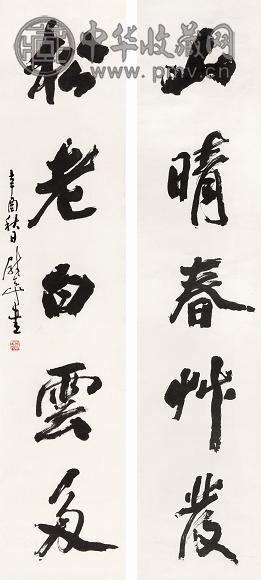 中华收藏网
www.pmv.cn
山晴春艸發
松老白雲多
辛酉秋日
書